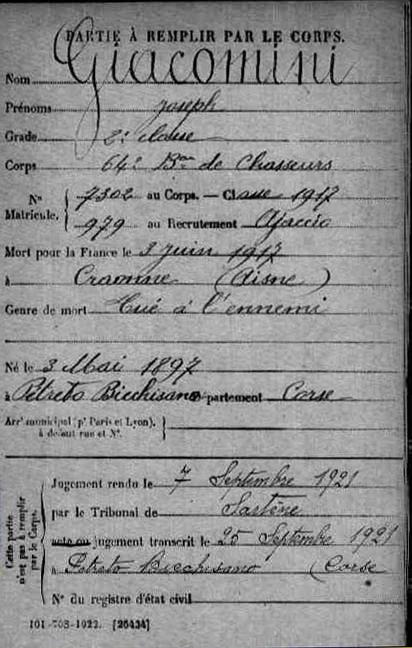 PARTIE À REMPLIR PAR LE CORPS.
Nom GIACOMINI
Prénoms Joseph
Grade 2e classe
Corps 64e Bon de Chasseurs
Nos Matricule. { 7302 au Corps. — Classe 1917
979 au Recrutement Ajaccio
Mort pour la France le 3 Juin 1917
à Craonne (Aisne)
Genre de mort Tué à l'ennemi
Né le 3 Mai 1897
à Petreto Bicchisano Département Corse
Arrt municipal (pr Paris et Lyon), à défaut rue et No. }
Cette partie n'est pas à remplir par le Corps.
Jugement rendu le 7 Septembre 1921
par le Tribunal de Sartène
acte ou jugement transcrit le 25 Septembre 1921
à Petreto Bicchisano (Corse
No du registre d'état civil
101-708-1922. [26434]